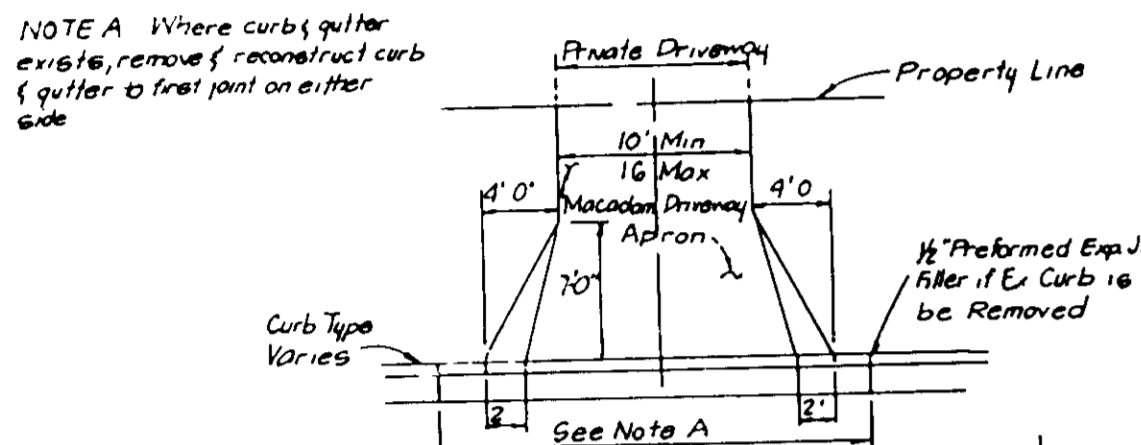 NOTE A Where curb & gutter
exists, remove & reconstruct curb
& gutter to first joint on either
side
Private Driveway
Property Line
10' Min
16 Max
4'0"
4'0
Macadam Driveway
Apron
7'0"
1/2" Preformed Exp. J.
Filler if Ex Curb is
be Removed
Curb Type
Varies
2
2'
See Note A